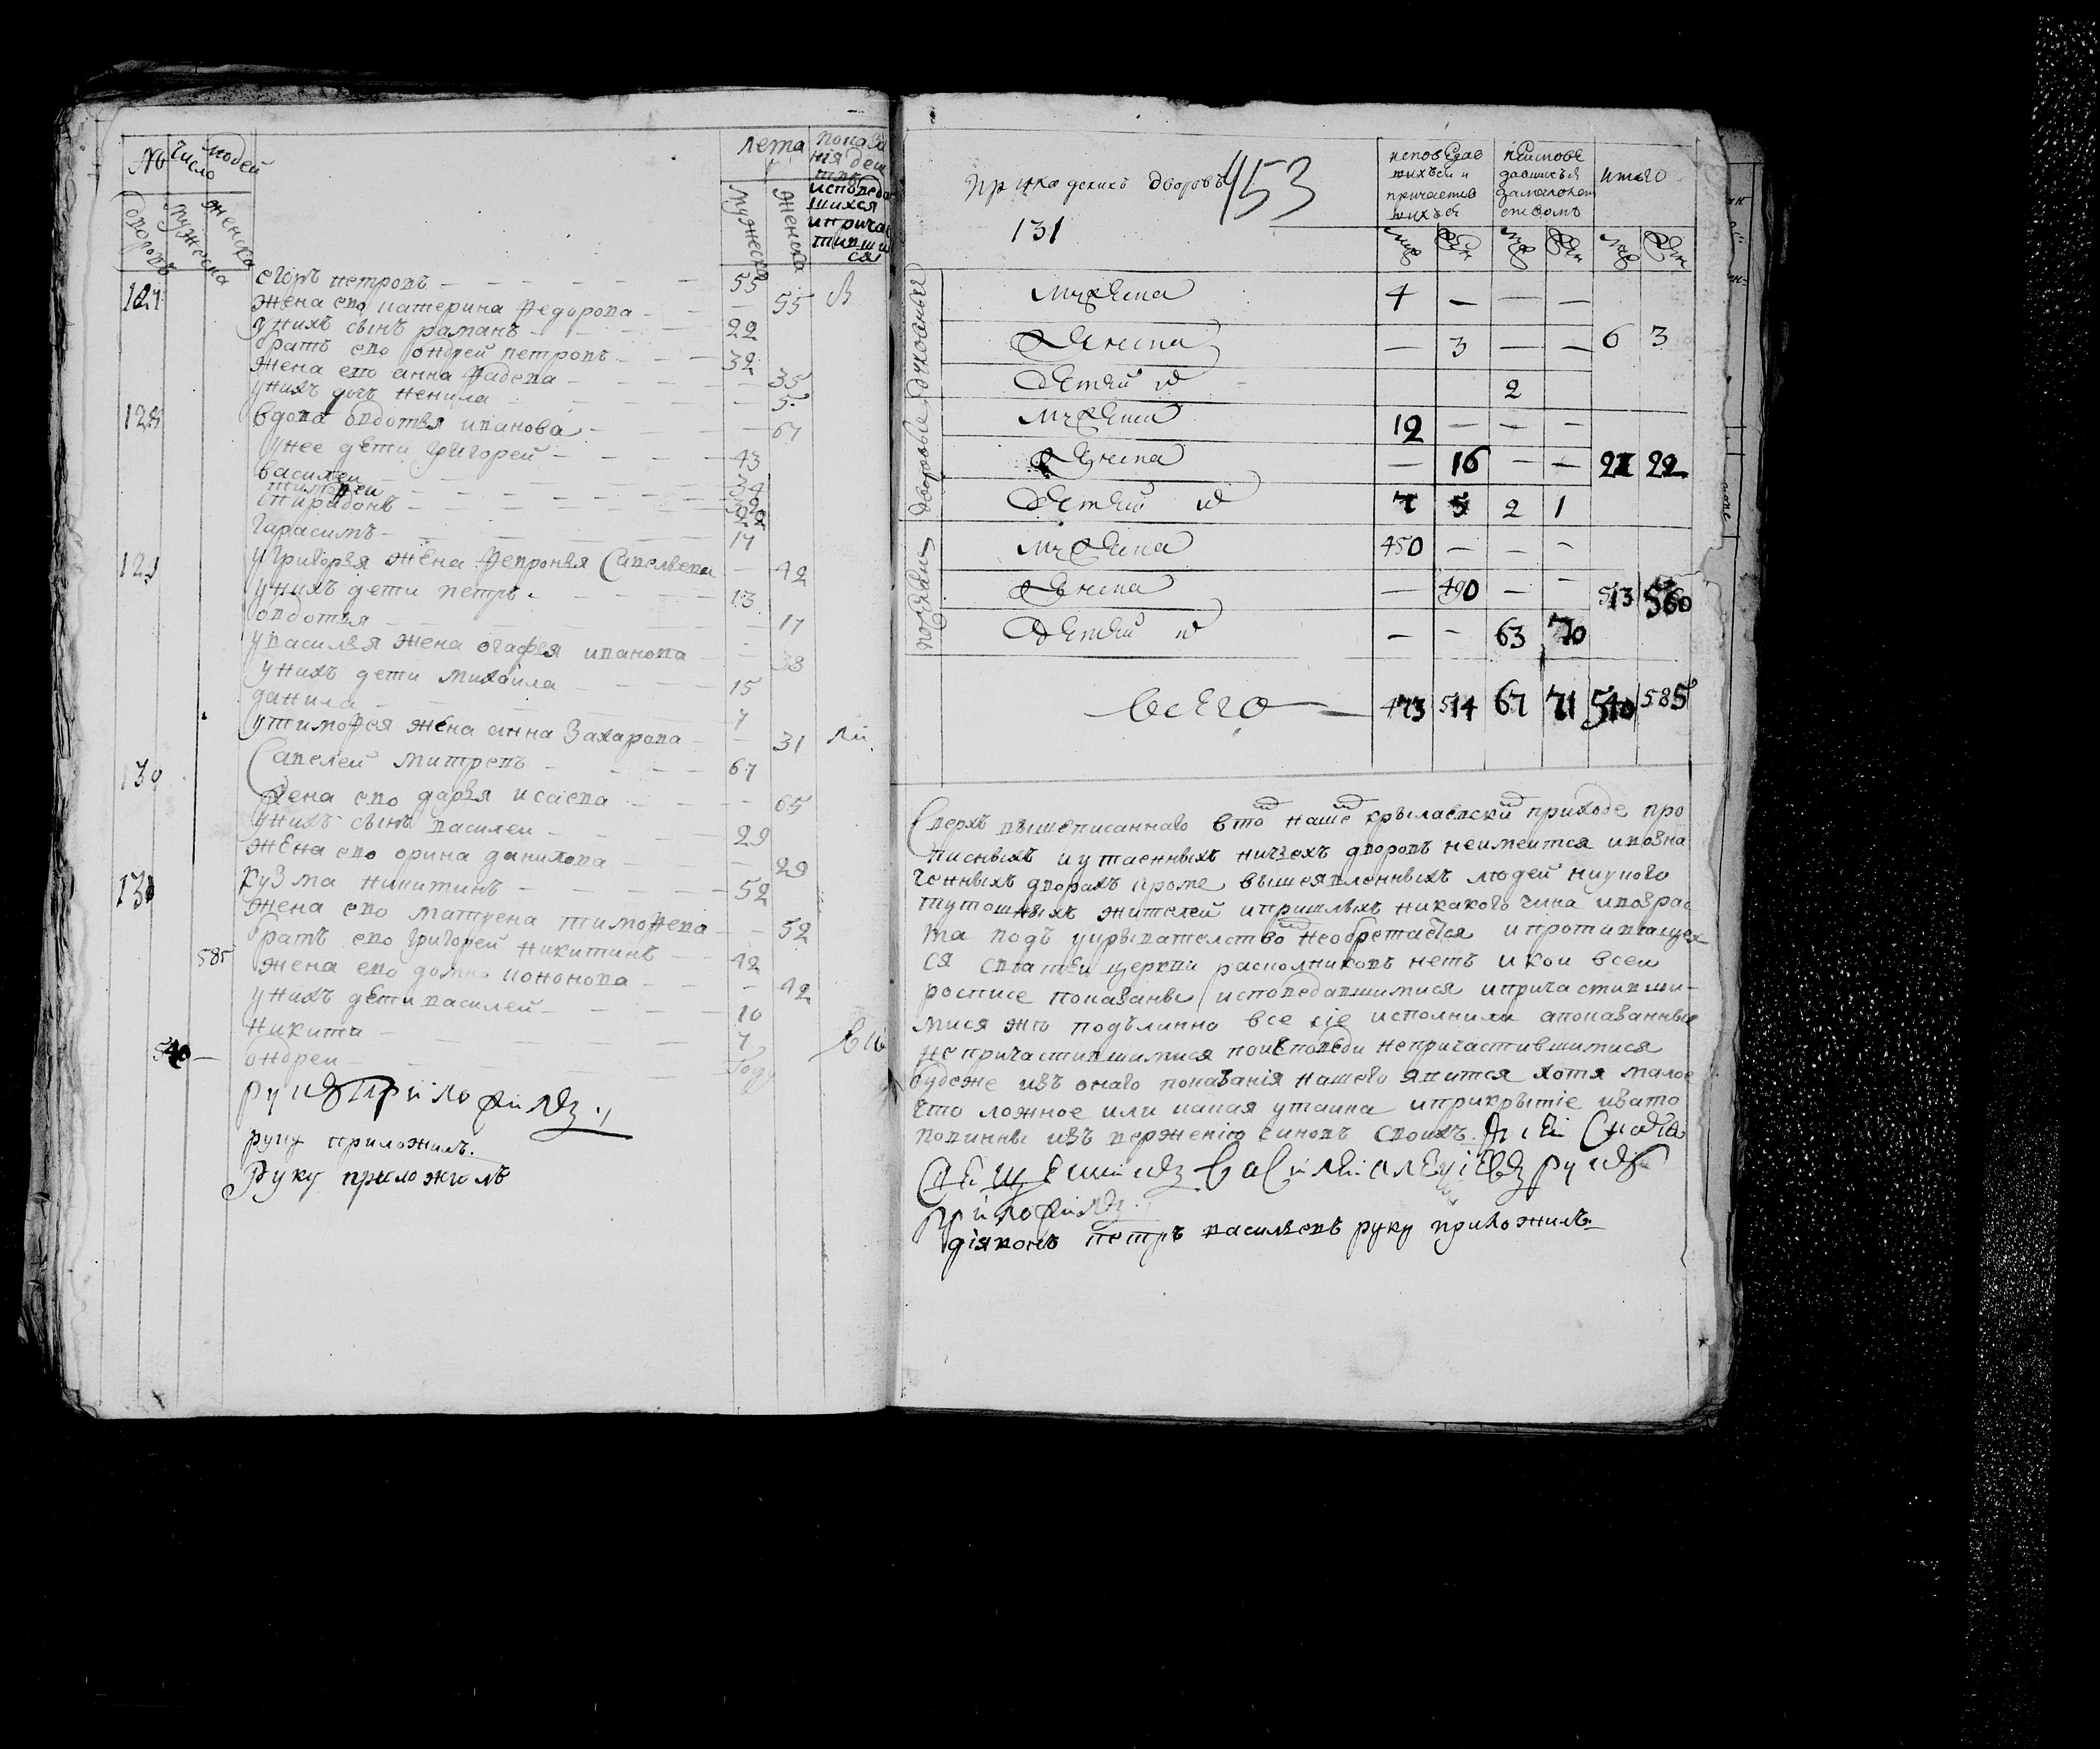 № число людей
лета
показа
нія деи
ства
исповеда
шихся
ипричас
тивши
ся
дворовъ
мужеска
женска
мужеска
женска
127 егоръ петровъ — 55
жена ево катерина федорова — 55
уних сынъ раманъ — 22
братъ ево ондрей петровъ — 32
жена ево анна фадева — 35
унихъ дочь ненила — 5
128 вдова овдотья иванова — 67
унее дети григорей — 43
василеи — 34
тимофеи
спиридонъ
гарасимъ — 17
129 угригорья жена февронья савельева — 42
унихъ дети петръ — 13
овдотья — 17
увасилья жена огафея иванова — 38
унихъ дети михаила — 15
данила — 7
утимофея жена анна захарова — 31
130 савелей митревъ — 67
жена ево дарья исаева — 65
унихъ сынъ василеи — 29
жена ево орина данилова — 29
131 кузма никитинъ — 52
жена ево матрена тимофева — 52
братъ ево григорей никитинъ — 42
585 жена ево домна кононова — 42
унихъ дети василей — 10
никита — 7
540 — ондреи — году
руку приложилъ
руку приложилъ
Руку приложилъ
приходскихъ дворовъ 453
131
исповедав
шихъся и
причастив
шихъся
неисповѣ
давшихъся
замалолет
ствомъ
итого
муж жен муж жен муж жен
духовныя
мужеска 4 — — —
женска — 3 — — 6 3
детей ихъ 2
дворовые
мужеска 12 — — —
женска — 16 — — 21 22
детей ихъ 7 5 2 1
мужеска 450 — — —
женска — 490 — — 513 560
детей ихъ — — 63 70
всего — 473 514 67 71 540 585
Сверхъ вышеписаннаго втом наше крылаевском приходе про
писныхъ иутаенныхъ ничьехъ дворовъ неимеится ивозна
ченныхъ дворахъ кроме вышеявленныхъ людей ниукого
тутошныхъ жителей ипришлыхъ никакого чина ивозрас
та подъ укрывателством необретается ипротивляущех
ся святѣи церкви расколниковъ нетъ икои всеи
росписе показаны исповедавшимися ипричастивши-
мися жъ подълинно все сіе исполнили апоказанные
непричастившимися поисповеди непричастившимися
будеже изъ онаго показанія нашего явится хотя малое
что ложное или какая утаика иприкрытіе изато
повинны изъ вержению чиновъ своихъ
священникъ василей алексіевъ руку
приложилъ
діяконъ петръ васильевъ руку приложилъ